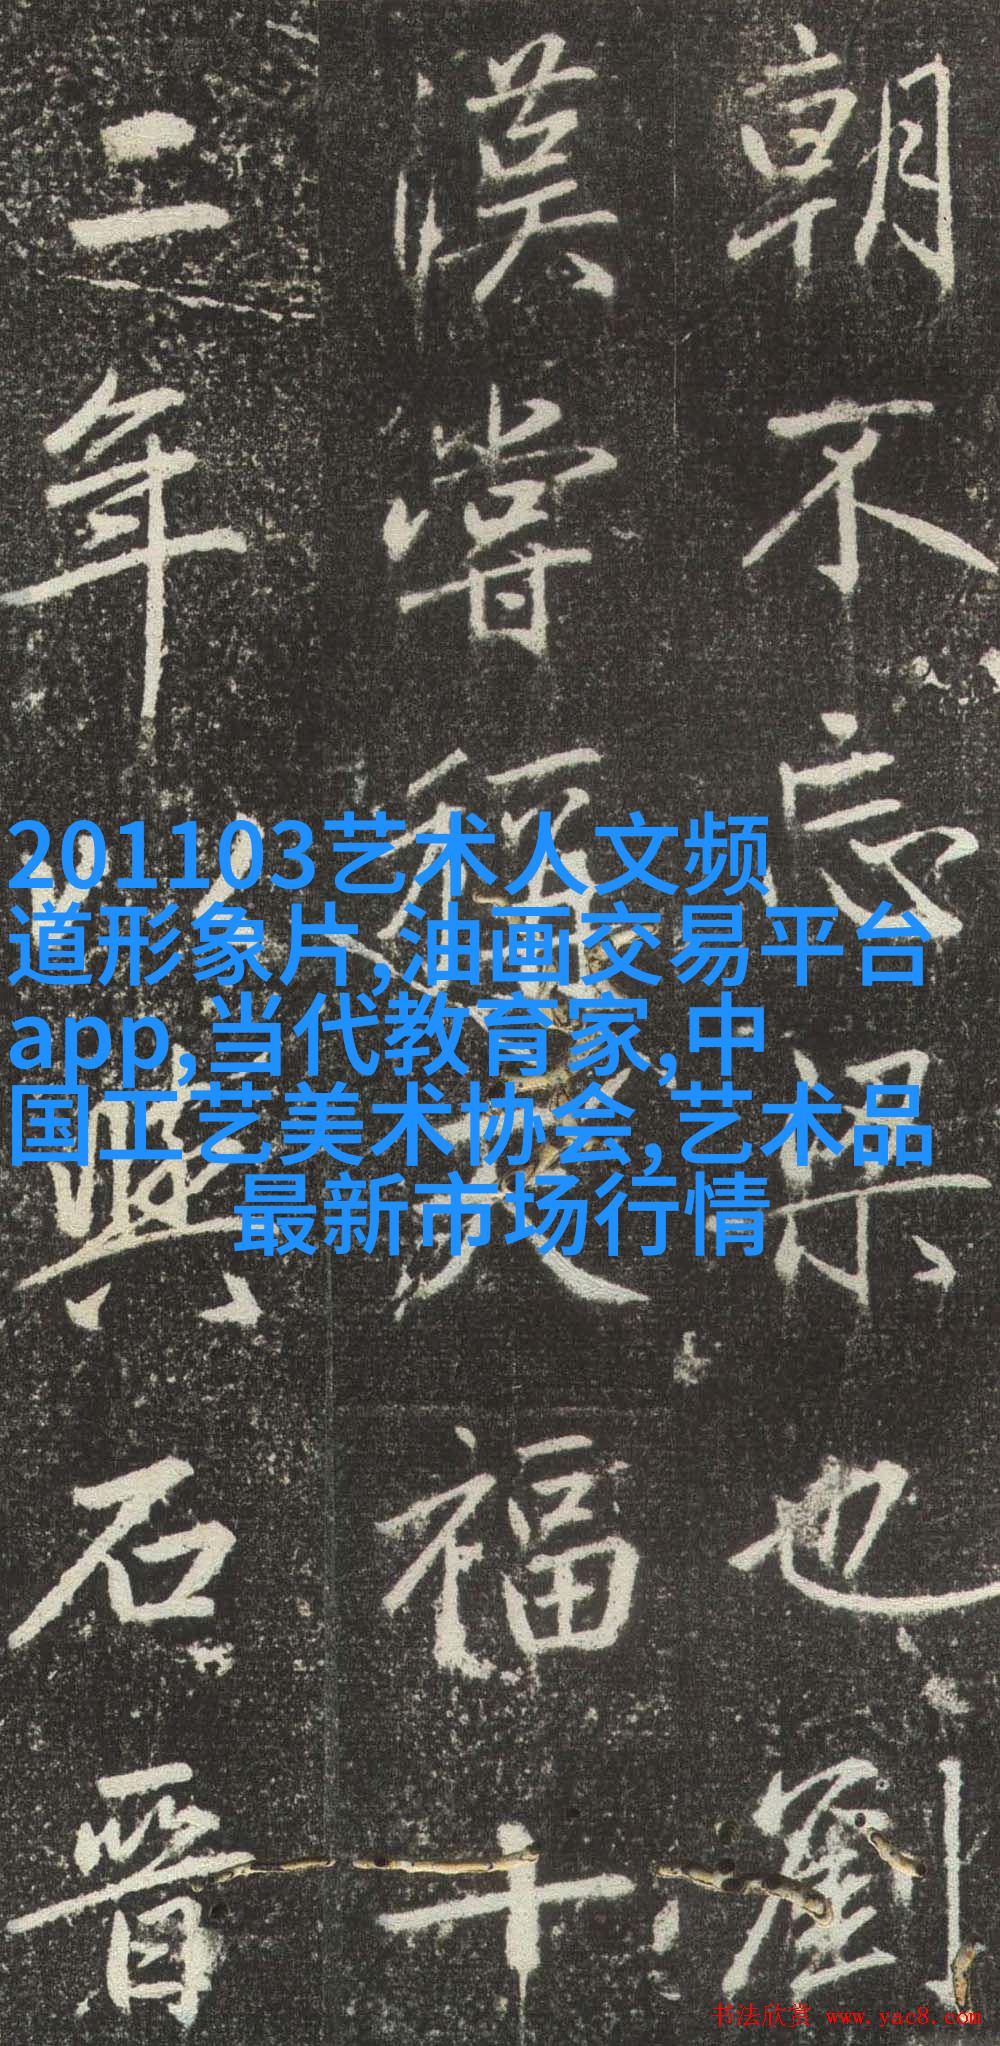 朝不忘也劉
漢嘗稱天福十
二年以與石晉
201103艺术人文频
道形象片,油画交易平台
app,当代教育家,中
国工艺美术协会,艺术品
最新市场行情
书法欣赏 www.yac8.com